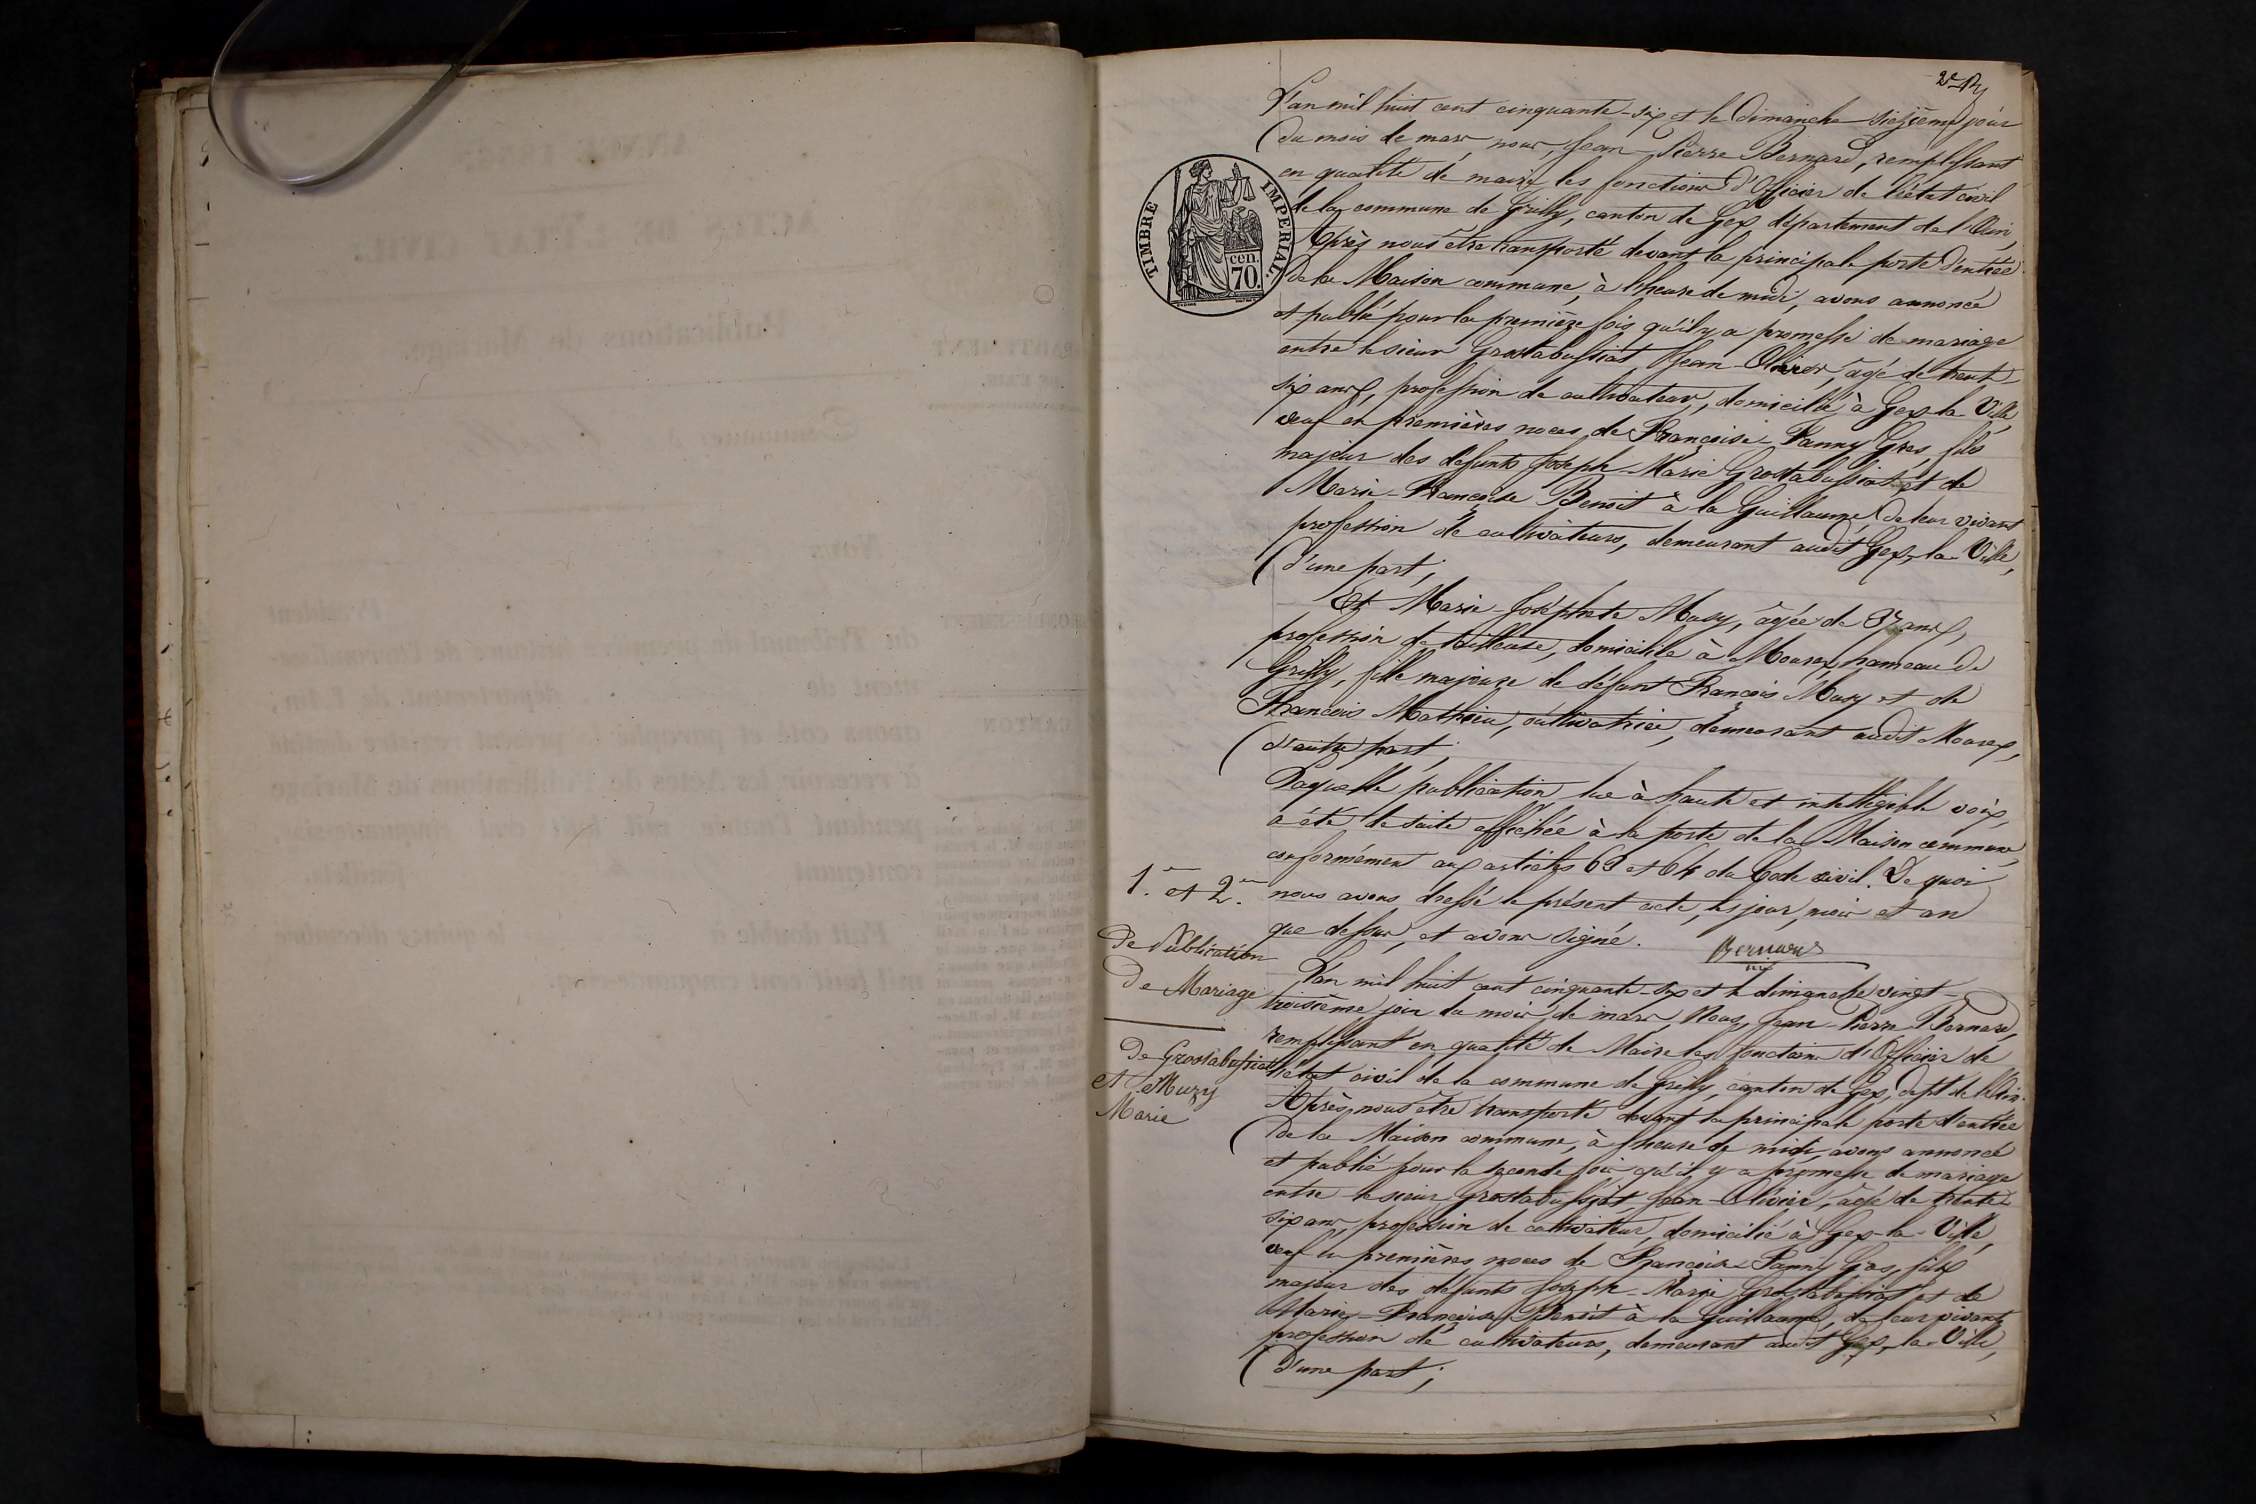 L'an mil huit cent cinquante-six et le Dimanche seizième jour
du mois de mars nous, Jean-Pierre Bernard, remplissant
en qualité de maire les fonctions d'Officier de l'état civil
de la commune de Grilly, canton de Gex, département de l'Ain,
Après nous être transporté devant la principale porte d'entrée
de la Maison commune, à l'heure de midi, avons annoncé
et publié pour la première fois qu'il y a promesse de mariage
entre le sieur Grostabussiat Jean-Olivier, âgé de trente-
six ans, profession de cultivateur, domicilié à Gex-la-Ville,
veuf en premières noces de Françoise-Fanny Gros, fils
majeur des défunts Joseph-Marie Grostabussiat et de
Marie-Françoise Benoit à la Guillaume, de leur vivant
profession de cultivateurs, demeurant audit Gex-la-Ville,
d'une part;
Et Marie-Josephte Musy, âgée de 37 ans,
profession de tailleuse, domiciliée à Mourex, hameau de
Grilly, fille majeure de défunt François Musy et de
François Mathieu, cultivatrice, demeurant audit Mourex,
d'autre part;
Laquelle publication lue à haute et intelligible voix,
a été de suite affichée à la porte de la Maison commune,
conformément aux articles 63 et 64 du Code civil. De quoi
nous avons dressé le présent acte, les jour, mois et an
que dessus, et avons signé.
Bernard
TIMBRE IMPERIAL.
cen.
70.
1.re et 2.me
De Publication
De Mariage
De Grostabussiat
et Muzy
Marie
L'an mil huit cent cinquante-six et le dimanche vingt-
troisième jour du mois de mars Nous, Jean-Pierre Bernard,
remplissant en qualité de Maire les fonctions d'Officier de
l'état civil de la commune de Grilly, canton de Gex, dépt de l'Ain.
Après nous être transporté devant la principale porte d'entrée
de la Maison commune, à l'heure de midi, avons annoncé
et publié pour la seconde fois qu'il y a promesse de mariage
entre le sieur Grostabussiat, Jean-Olivier, âgé de trente-
six ans, profession de cultivateur, domicilié à Gex-la-Ville,
veuf en premières noces de Françoise Fanny Gros, fils
majeur des défunts Joseph-Marie Grostabussiat et de
Marie-Françoise Benoit à la Guillaume, de leur vivant
profession de cultivateurs, demeurant audit Gex-la-Ville,
d'une part;